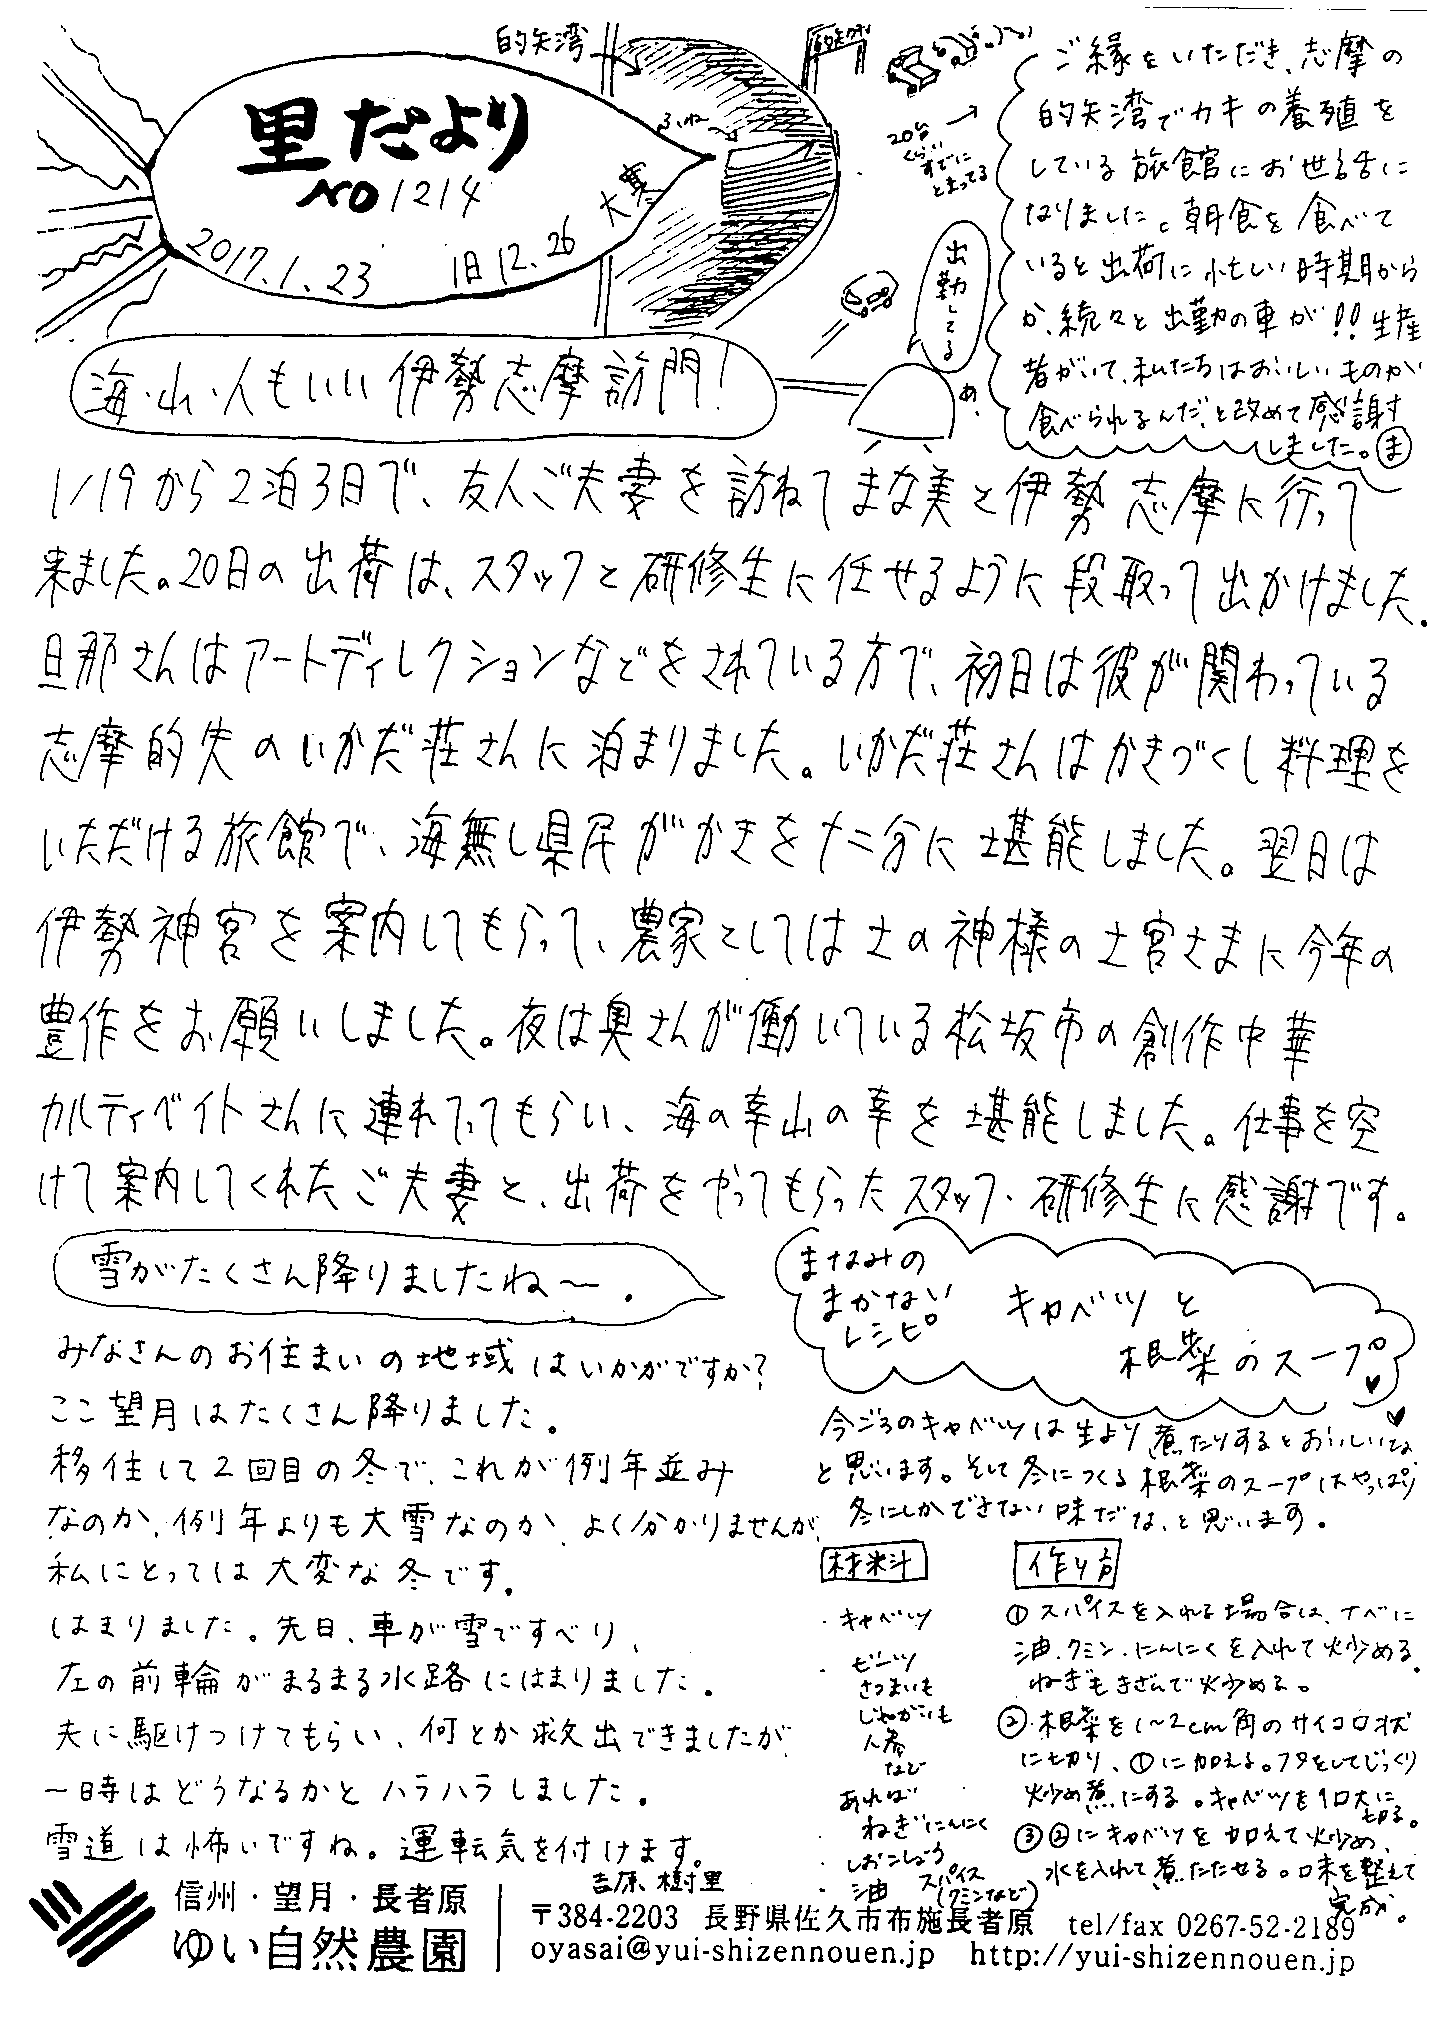 里だより
NO 1214
2017.1.23 旧12.26 大寒
的矢湾
ふね
20台
くらい
すでに
とまってる
出勤してる
あ、
ご縁をいただき、志摩の
的矢湾でカキの養殖を
している旅館にお世話に
なりました。朝食を食べて
いると出荷に忙しい時期から
か、続々と出勤の車が!!生産
者がいて、私たちはおいしいものが
食べられるんだ、と改めて感謝す
しました。ま
海・山・人もいい伊勢志摩訪問!
1/19から2泊3日で、友人ご夫妻を訪ねてまな美と伊勢志摩に行って
来ました。20日の出荷は、スタッフと研修生に任せるように段取って出かけました。
旦那さんはアートディレクションなどをされている方で、初日は彼が関わっている
志摩的矢のいかだ荘さんに泊まりました。いかだ荘さんはかきづくし料理を
いただける旅館で、海無し県民がかきを十二分に堪能しました。翌日は
伊勢神宮を案内してもらって、農家としては土の神様の土宮さまに今年の
豊作をお願いしました。夜は奥さんが働いている松坂市の創作中華
カルティベイトさんに連れてってもらい、海の幸山の幸を堪能しました。仕事を空
けて案内してくれたご夫妻と、出荷をやってもらったスタッフ・研修生に感謝です。
雪がたくさん降りましたね〜。
みなさんのお住まいの地域はいかがですか?
ここ望月はたくさん降りました。
移住して2回目の冬で、これが例年並み
なのか、例年よりも大雪なのか、よく分かりませんが、
私にとっては大変な冬です。
はまりました。先日、車が雪ですべり、
左の前輪がまるまる水路にはまりました。
夫に駆けつけてもらい、何とか救出できましたが、
一時はどうなるかとハラハラしました。
雪道は怖いですね。運転気を付けます。
吉原 樹里
まなみの
まかない
レシピ
キャベツと
根菜のスープ
今ごろのキャベツは生より煮たりするとおいしいな、
と思います。そして冬につくる根菜のスープはやっぱり
冬にしかできない味だな、と思います。
材料
・キャベツ
・ビーツ
さつまいも
じゃがいも
人参
など
あれば
ねぎ にんにく
・しおこしょう
・油 スパイス
(クミンなど)
作り方
①スパイスを入れる場合は、ナベに
油・クミン・にんにくを入れて炒める。
ねぎもきざんで炒める。
②・根菜を1〜2cm角のサイコロ状
に切り、①に加える。フタをしてじっくり
炒め煮にする。キャベツを1口大に
切る。
③②にキャベツを加えて炒め、
水を入れて煮たたせる。味を整えて
完成。
信州・望月・長者原
ゆい自然農園
〒384-2203 長野県佐久市布施長者原 tel/fax 0267-52-2189
oyasai@yui-shizennouen.jp http://yui-shizennouen.jp